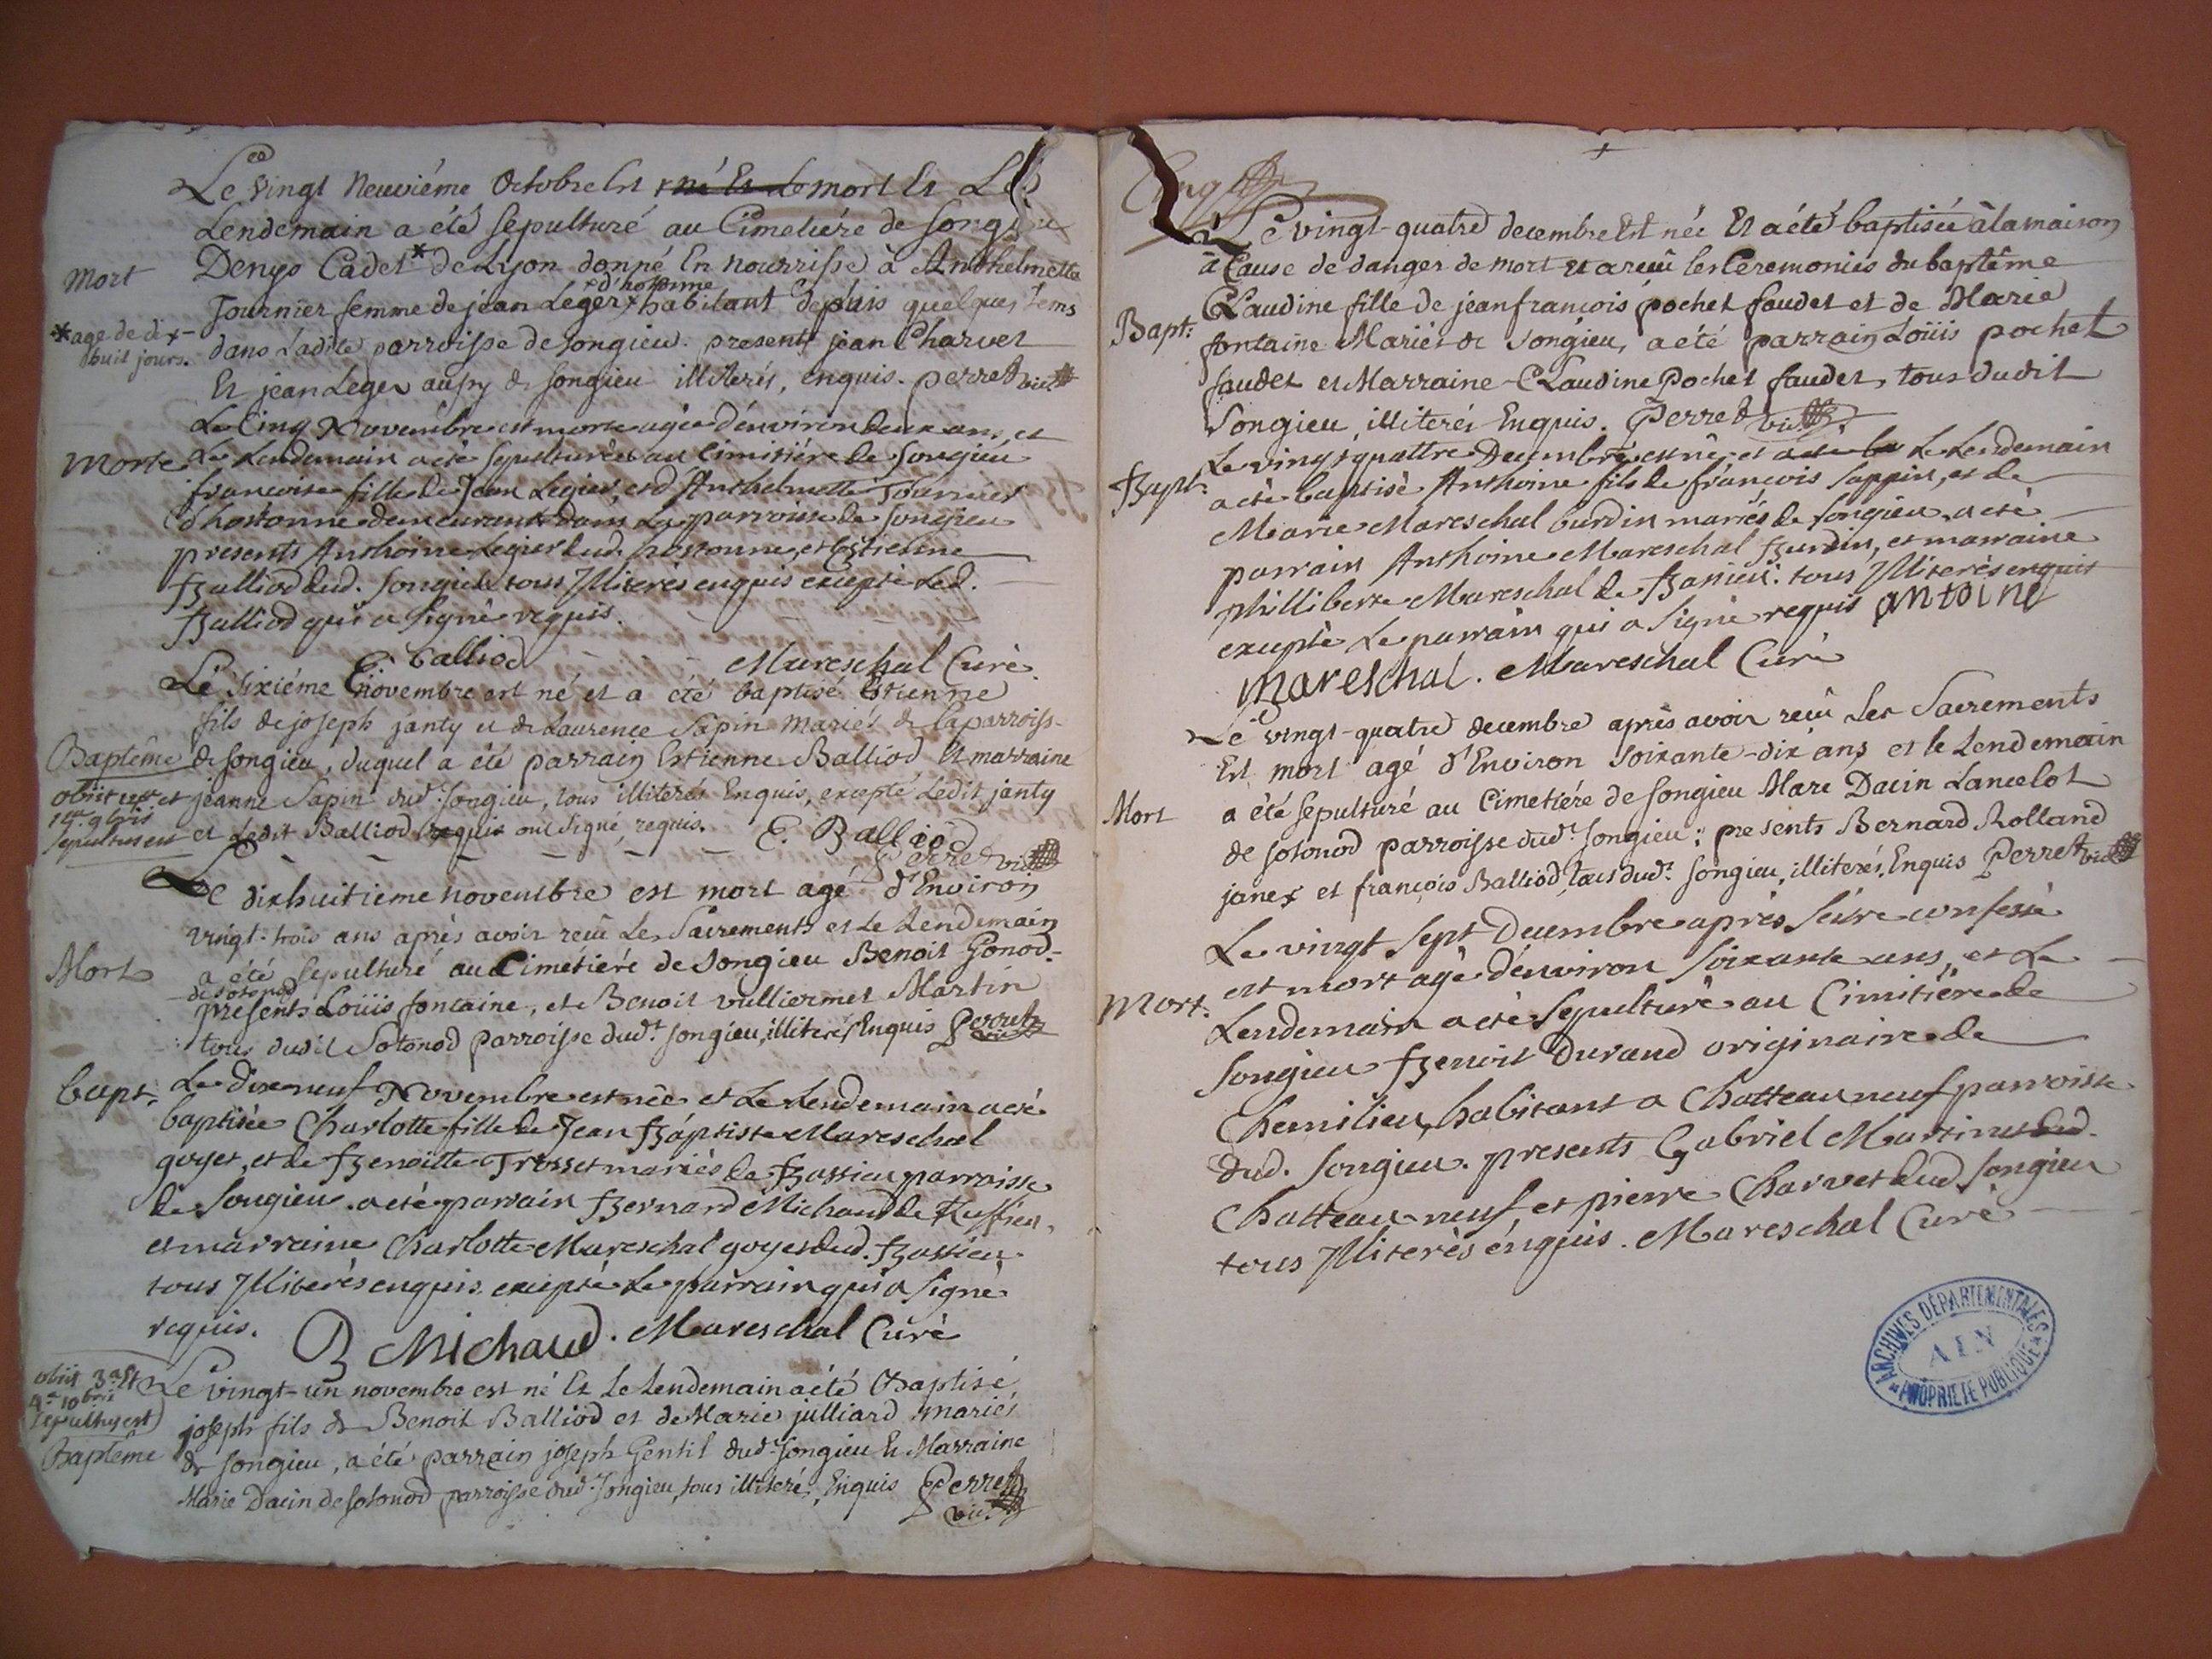 Le vingt Neuviéme Octobre Est né Et Le mort Et Le
Lendemain a été sepulturé au Cimetiére de Songieu
Mort
Denys Cadet * de Lyon donné En nourrisse à Anthelmette
+ d'hotonne
Tournier femme de jean Leger + habitant depuis quelques tems
* agé de dix-
huit jours.
dans Ladite parroisse de songieu. presents jean Charvet
Et jean Leger aussy de songieu illiterés, enquis. Perret vic.
Le Cinq Novembre est morte agée d'environ deux ans, et
Morte
Le Lendemain a été sepulturée au Cimitiére de Songieu
françoise fille de Jean Legier, et d'Anthelmette Tournier
d'hostonne demeurants dans La parroisse de Songieu
presents Anthoine Legier dud. hostonne, et Estienne
Balliod dud. Songieu tous Illiterés enquis excepté Led.
Balliod qui a signé requis.
E. balliod Mareschal Curé
Le sixiéme novembre est né et a été baptisé Etienne
fils de joseph janty et de Laurence Sapin mariés de la parroiss-
Baptême
de songieu, duquel a été parrain Estienne Balliod Et marraine
obiit
jeanne Sapin dud. Songieu, tous illiterés Enquis, excepté Ledit janty
sepultus est
et Ledit Balliod requis ont signé, requis. E. Balliod
Perret vic.
Le dixhuitieme novembre est mort agé d'Environ
vingt-trois ans après avoir reçû Les Sacrements et le Lendemain
Mort
a été sepulturé au Cimetiére de Songieu Benoit Gonod-
de sotonod
presents Loüis fontaine, et Benoit vulliermet Martin
tous dudit Sotonod parroisse dud. songieu, illiterés Enquis Perret vic.
bapt.
Le dix neuf Novembre est née et Le Lendemain a eté
baptisée Charlotte fille de Jean Baptiste Mareschal
goyet, et de Benoitte Trosset mariés de Bassieu parroisse
de Songieu. a eté parrain Bernard Michaud de Ruffieu,
et marraine Charlotte Mareschal goyet dud. Bassieu
tous Illiterés enquis excepté Le parrain qui a signé
requis. B Michaud. Mareschal Curé
obiit 3a Et
4a 10bris
sepultus est
Le vingt-un novembre est né Et Le Lendemain a été Baptisé
joseph fils de Benoit Balliod et de Marie julliard mariés
Baptême
de songieu, a été parrain joseph Gentil dud. Songieu Et Marraine
Marie Dacin de sotonod parroisse dud. Songieu, tous illiterés, Enquis Perret
vic.
Le vingt-quatre decembre Est née Et a été baptisée à la maison
à Cause de danger de mort et a reçû les Ceremonies du baptême
Bapt.
Claudine fille de jean françois pochet faudet et de Marie
fontaine Mariés de Songieu, a été parrain Loüis pochet
faudet et Marraine Claudine Pochet faudet, tous dudit
Songieu, illiterés Enquis. Perret vic.
Bapt.
Le vingt quattre Decembre est né et a eté ba Le Lendemain
a eté baptisé Anthoine fils de françois Sappin, et de
Marie Mareschal burdin mariés de Songieu. a eté
parrain Anthoine Mareschal Burdin, et marraine
philliberte Mareschal de Bassieu. tous Illiterés enquis
excepté Le parrain qui a signé requis antoine
mareschal. Mareschal Curé
Le vingt-quatre decembre après avoir reçû Les Sacrements
Est mort agé d'Environ soixante-dix ans et le Lendemain
Mort
a été sepulturé au Cimetiére de songieu Marc Dacin Lancelot
de sotonod parroisse dud. songieu; presents Bernard Rolland
janex et françois Balliod, tous dud. songieu, illiterés, Enquis Perret vic.
Le vingt sept Decembre aprés s'être confessé
est mort agé d'environ soixante ans, et Le
Mort.
Lendemain a eté sepulturé au Cimitiére de
Songieu Benoit Durand originaire de
Chemilieu, habitant a Chatteauneuf parroisse
dud. Songieu. presents Gabriel Martin dud.
Chatteauneuf, et pierre Charvet dud. Songieu
tous Illiterés enquis. Mareschal Curé
ARCHIVES DÉPARTEMENTALES
AIN
* PROPRIETE PUBLIQUE *